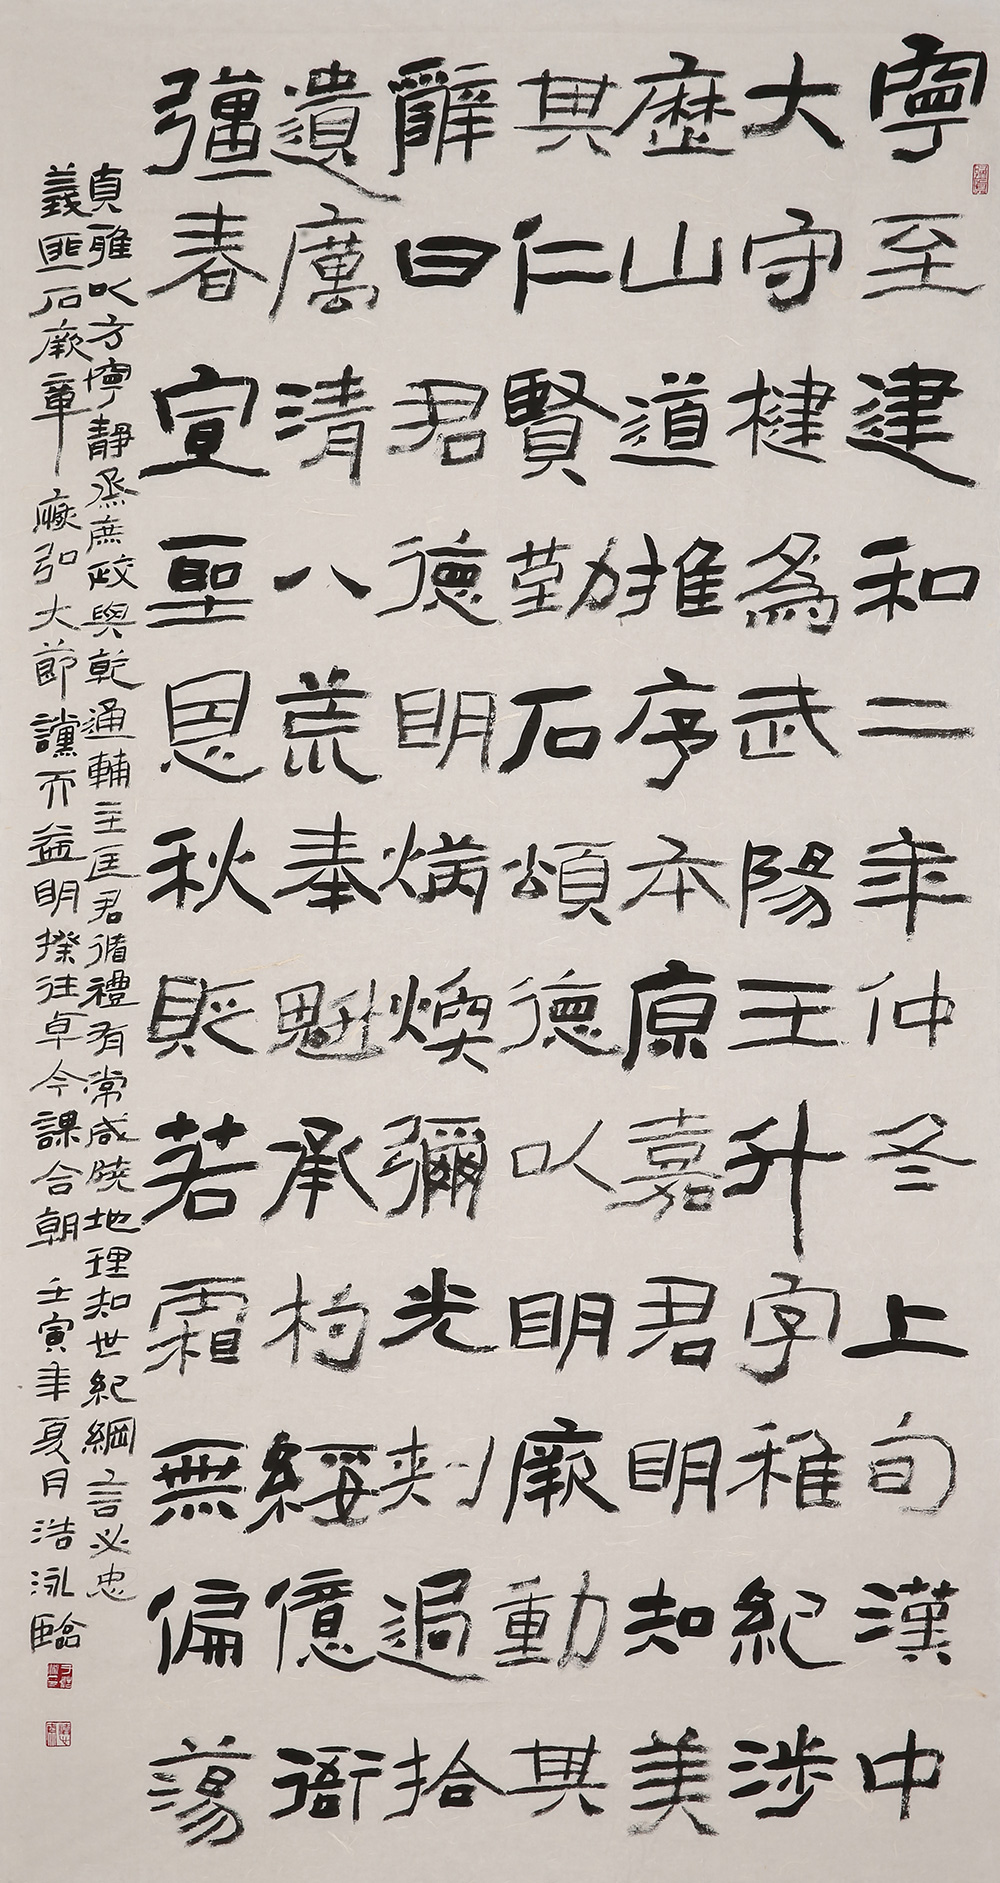 寧至建和二年仲冬上旬漢中
大守楗為武陽王升字稚紀涉
歷山道推序本原嘉君明知美
其仁賢勒石頌德以明厥勳其
辭曰君德明明炳煥彌光刺過拾
遺厲清八荒奉魁承杓綏億衙
彊春宣聖恩秋貶若霜無偏蕩
貞雅以方寧靜烝庶政與乾通輔主匡君循禮有常咸曉地理知世紀綱言必忠
義匪石厥章恢弘大節讜而益明揆往卓今謀合朝 壬寅年夏月浩泳臨